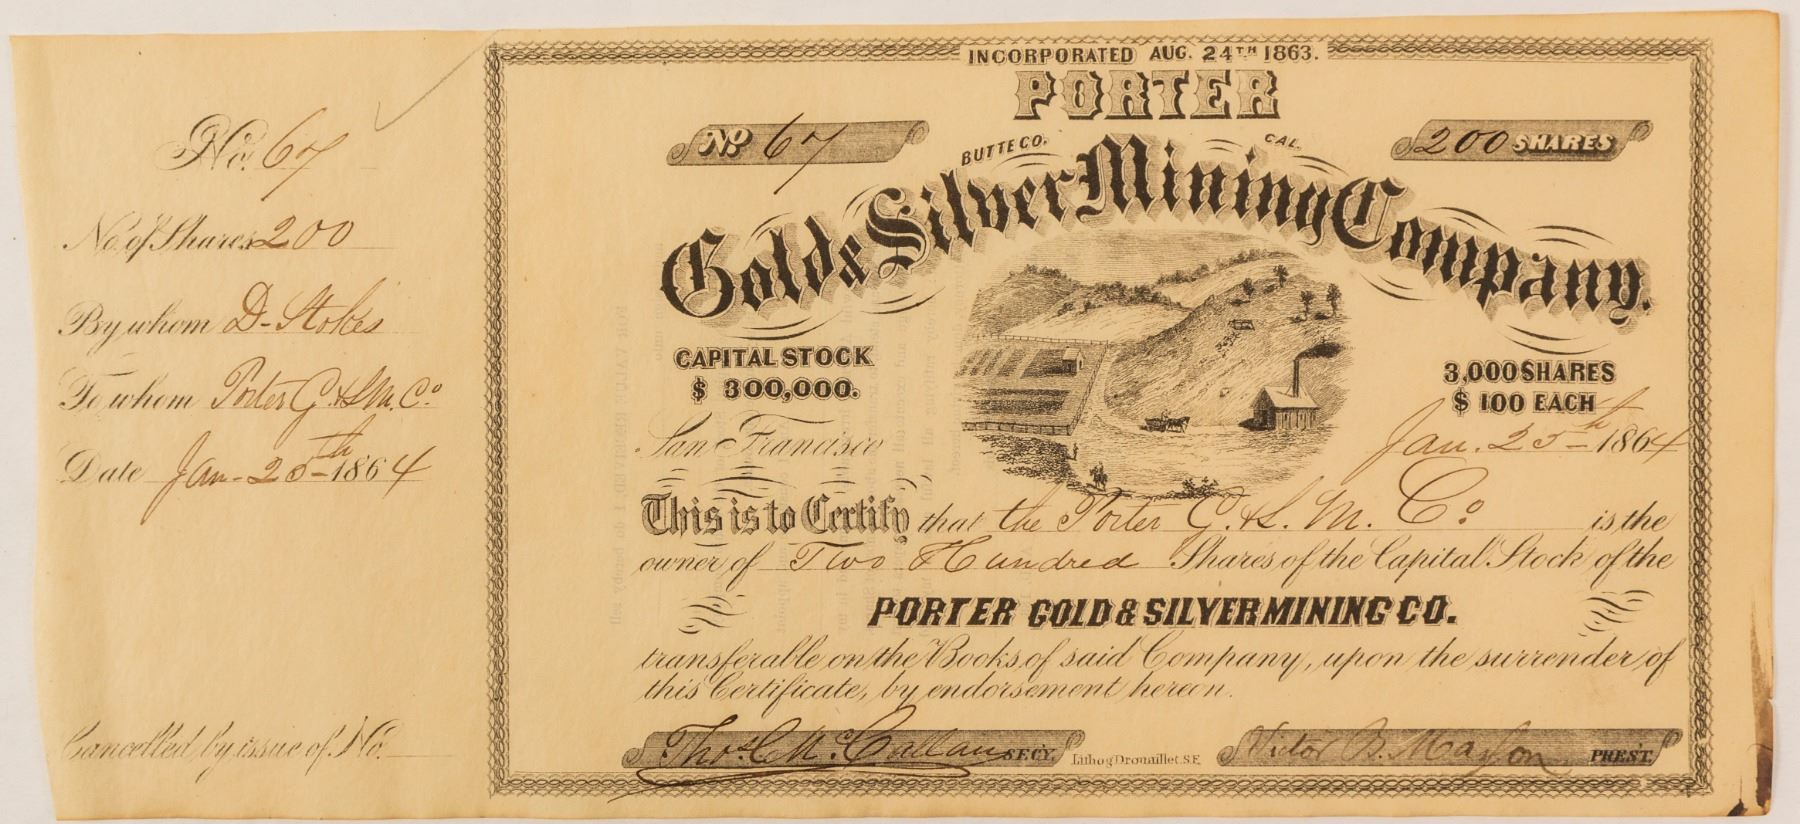 No. 67
No. of Shares 200
By whom D. Stokes
To whom Porter G. & S. M. Co.
Date Jan. 25th 1864
Cancelled by issue of No.
INCORPORATED AUG. 24TH 1863.
PORTER
No 67
BUTTE CO. CAL.
200 SHARES
Gold & Silver Mining Company.
CAPITAL STOCK
$ 300,000.
3,000 SHARES
$ 100 EACH
San Francisco Jan. 25th 1864
This is to Certify that the Porter G. & S. M. Co. is the
owner of Two Hundred Shares of the Capital Stock of the
PORTER GOLD & SILVER MINING CO.
transferable on the Books of said Company, upon the surrender of
this Certificate, by endorsement hereon.
Thos. C. McCallan SECY.
Lithog Drouaillet. S.F.
Victor B. PREST.